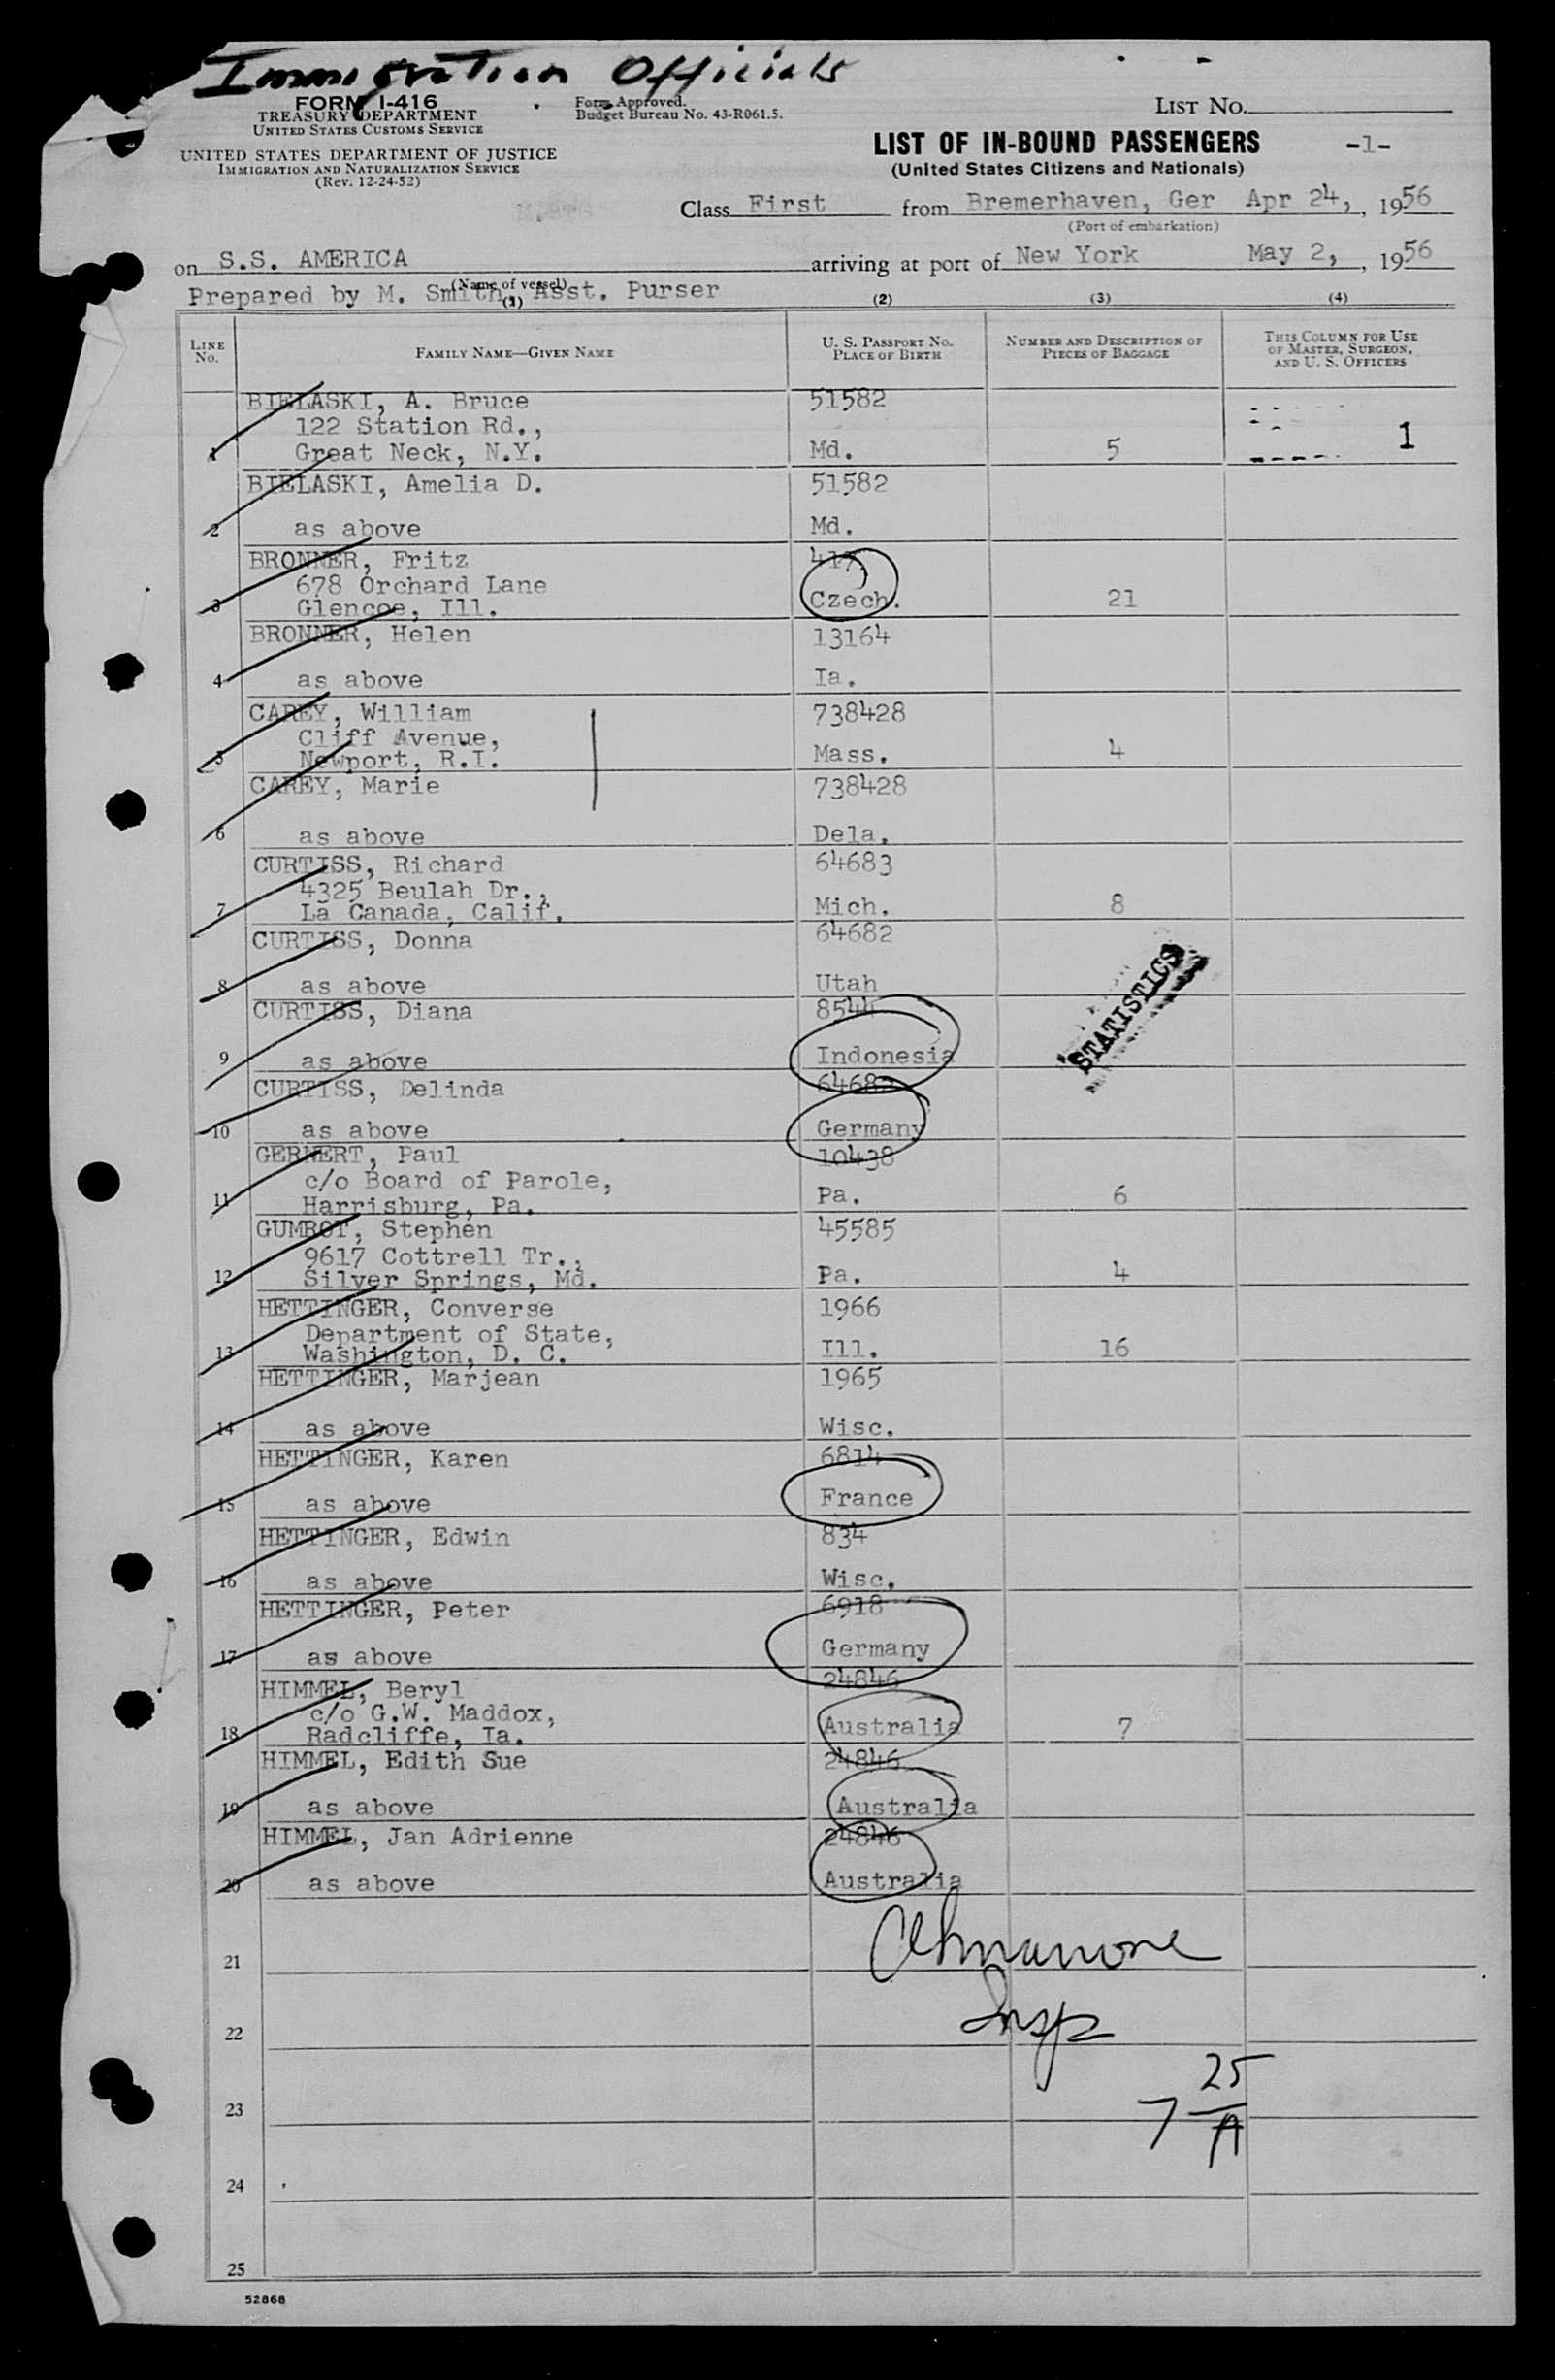 Immigration Officials
FORM I-416
TREASURY DEPARTMENT
UNITED STATES CUSTOMS SERVICE
UNITED STATES DEPARTMENT OF JUSTICE
IMMIGRATION AND NATURALIZATION SERVICE
(Rev. 12-24-52)
Form Approved.
Budget Bureau No. 43-R061.5.
LIST NO.
LIST OF IN-BOUND PASSENGERS -1-
(United States Citizens and Nationals)
Class First from Bremerhaven, Ger Apr 24, , 1956
(Port of embarkation)
on S.S. AMERICA arriving at port of New York May 2, , 1956
(Name of vessel)
Prepared by M. Smith, Asst. Purser
(1) (2) (3) (4)
LINE NO. FAMILY NAME—GIVEN NAME U. S. PASSPORT NO. PLACE OF BIRTH NUMBER AND DESCRIPTION OF PIECES OF BAGGAGE THIS COLUMN FOR USE OF MASTER, SURGEON, AND U. S. OFFICERS
BIELASKI, A. Bruce 51582
122 Station Rd.,
1 Great Neck, N.Y. Md. 5 1
BIELASKI, Amelia D. 51582
2 as above Md.
BRONNER, Fritz
678 Orchard Lane
3 Glencoe, Ill. Czech. 21
BRONNER, Helen 13164
4 as above Ia.
CAREY, William 738428
Cliff Avenue,
5 Newport, R.I. Mass. 4
CAREY, Marie 738428
6 as above Dela.
CURTISS, Richard 64683
4325 Beulah Dr.,
7 La Canada, Calif. Mich. 8
CURTISS, Donna 64682
8 as above Utah
CURTISS, Diana 8544
9 as above Indonesia
CURTISS, Delinda
10 as above Germany
GERNERT, Paul 10438
c/o Board of Parole,
11 Harrisburg, Pa. Pa. 6
GUMBOT, Stephen 45585
9617 Cottrell Tr.,
12 Silver Springs, Md. Pa. 4
HETTINGER, Converse 1966
Department of State,
13 Washington, D. C. Ill. 16
HETTINGER, Marjean 1965
14 as above Wisc.
HETTINGER, Karen 6814
15 as above France
HETTINGER, Edwin 834
16 as above Wisc.
HETTINGER, Peter 6918
17 as above Germany
HIMMEL, Beryl 24846
c/o G.W. Maddox,
18 Radcliffe, Ia. Australia 7
HIMMEL, Edith Sue 24846
19 as above Australia
HIMMEL, Jan Adrienne 24846
20 as above Australia
STATISTICS
21
Insp
22
25
23 7 A
24
25
52868